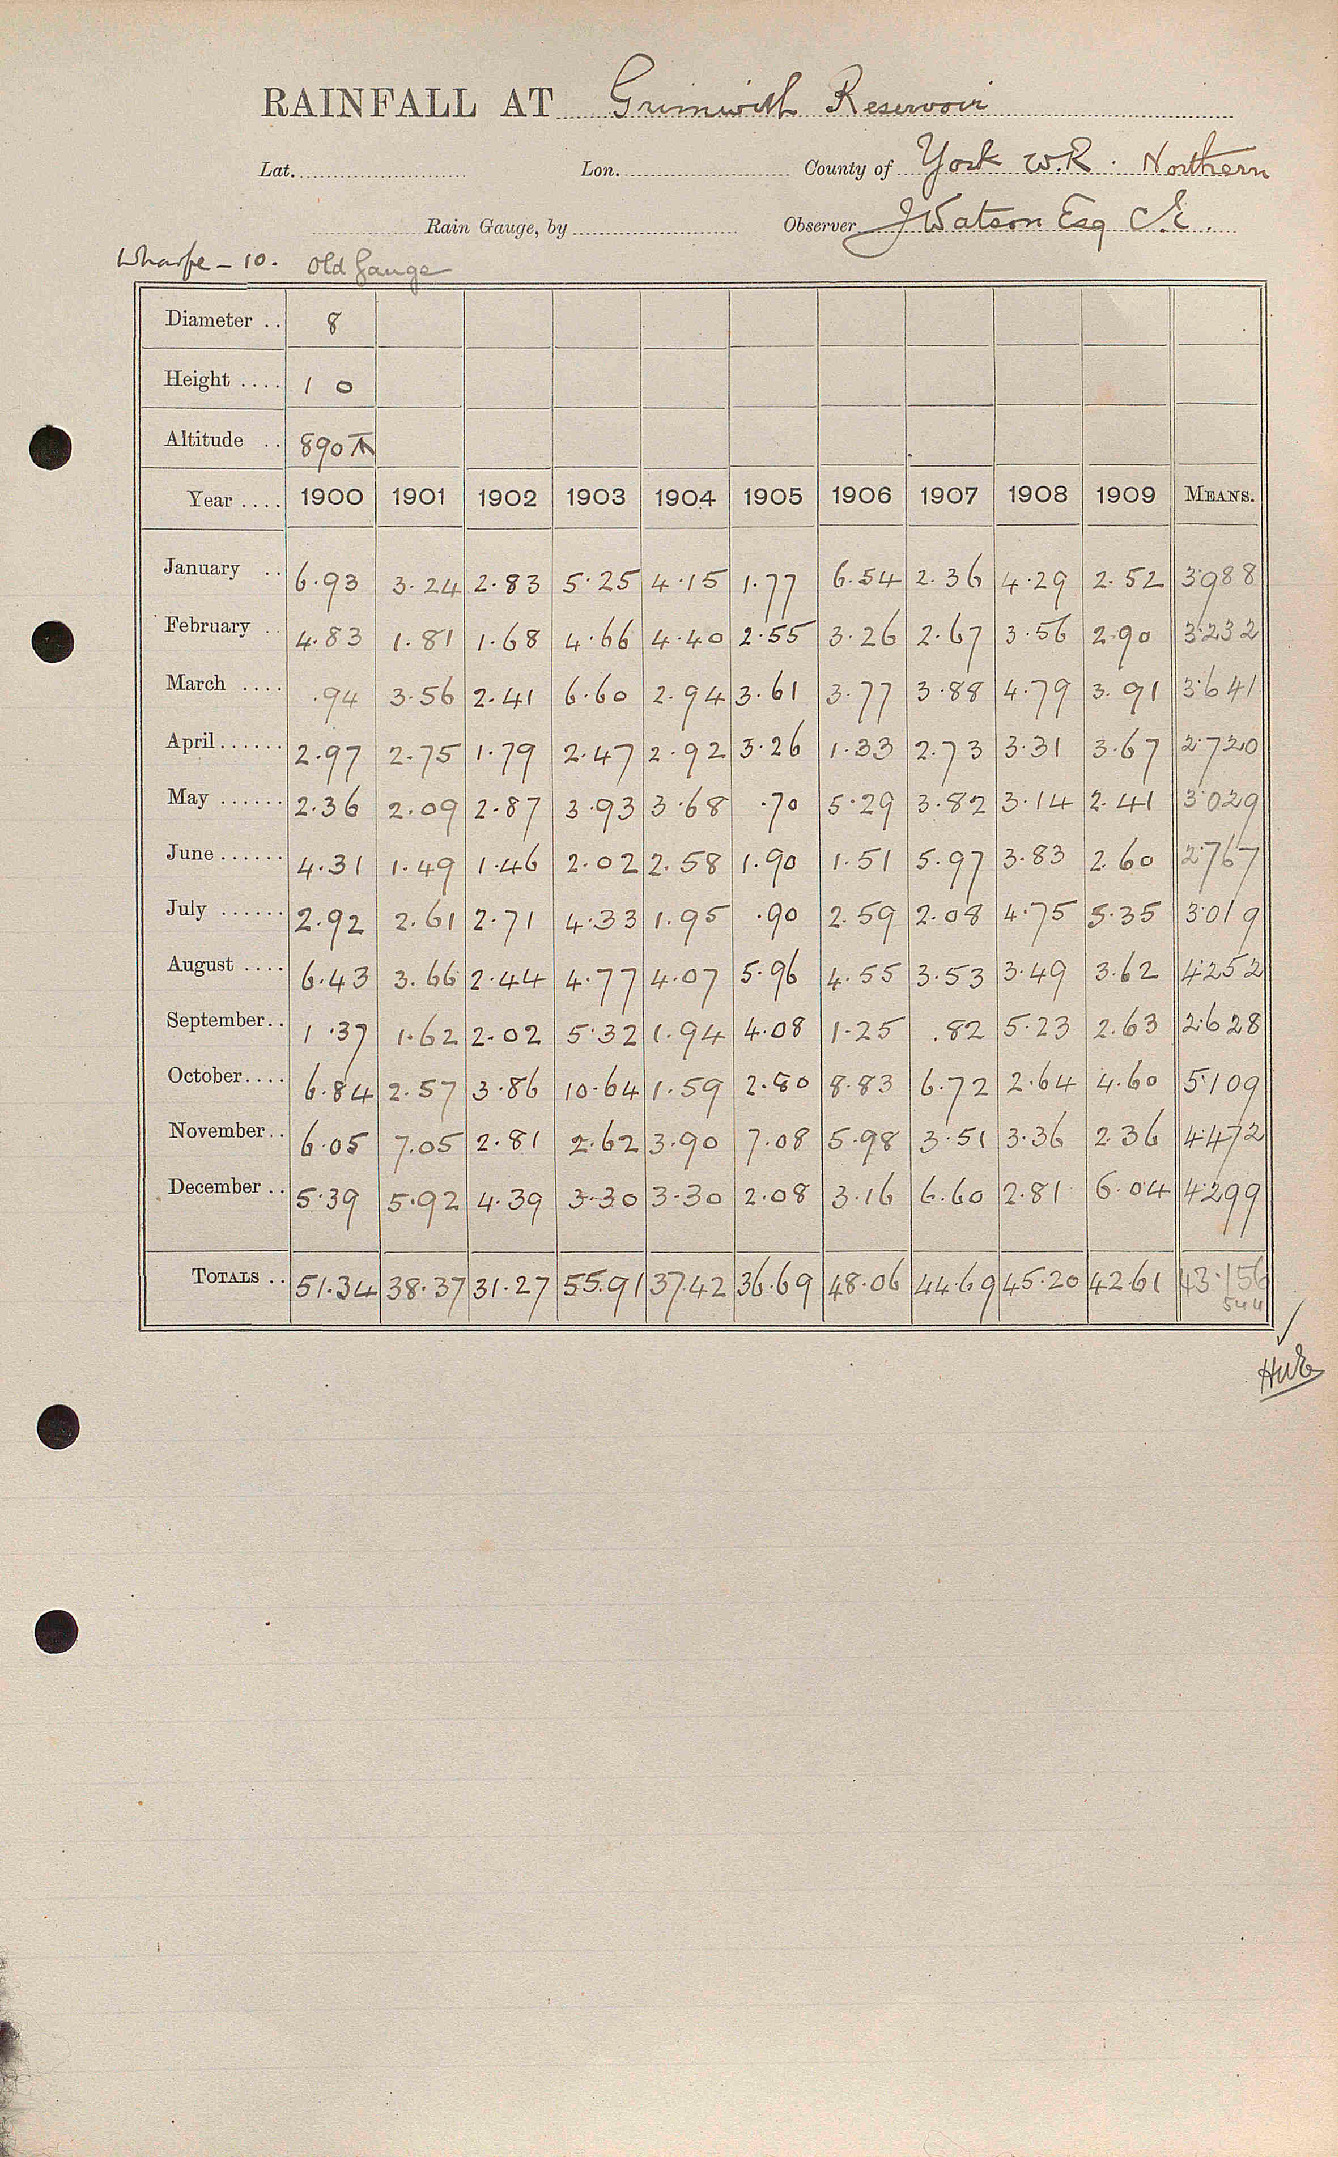 RAINFALL AT Grimwith Reservoir
Lat. Lon. County of York W.R. Northern
Rain Gauge, by Observer J Watson Esq C.E.
Wharfe - 10. Old Gauge
Diameter .. 8
Height .... 1 0
Altitude .. 890 ft
Year .... 1900 1901 1902 1903 1904 1905 1906 1907 1908 1909 MEANS.
January .. 6.93 3.24 2.83 5.25 4.15 1.77 6.54 2.36 4.29 2.52 3.988
February .. 4.83 1.81 1.68 4.66 4.40 2.55 3.26 2.67 3.56 2.90 3.232
March .... .94 3.56 2.41 6.60 2.94 3.61 3.77 3.88 4.79 3.91 3.641
April ...... 2.97 2.75 1.79 2.47 2.92 3.26 1.33 2.73 3.31 3.67 2.720
May ...... 2.36 2.09 2.87 3.93 3.68 .70 5.29 3.82 3.14 2.41 3.029
June ...... 4.31 1.49 1.46 2.02 2.58 1.90 1.51 5.97 3.83 2.60 2.767
July ...... 2.92 2.61 2.71 4.33 1.95 .90 2.59 2.08 4.75 5.35 3.019
August .... 6.43 3.66 2.44 4.77 4.07 5.96 4.55 3.53 3.49 3.62 4.252
September.. 1.37 1.62 2.02 5.32 1.94 4.08 1.25 .82 5.23 2.63 2.628
October.... 6.84 2.57 3.86 10.64 1.59 2.80 8.83 6.72 2.64 4.60 5.109
November.. 6.05 7.05 2.81 2.62 3.90 7.08 5.98 3.51 3.36 2.36 4.472
December .. 5.39 5.92 4.39 3.30 3.30 2.08 3.16 6.60 2.81 6.04 4.299
TOTALS .. 51.34 38.37 31.27 55.91 37.42 36.69 48.06 44.69 45.20 42.61 43.156